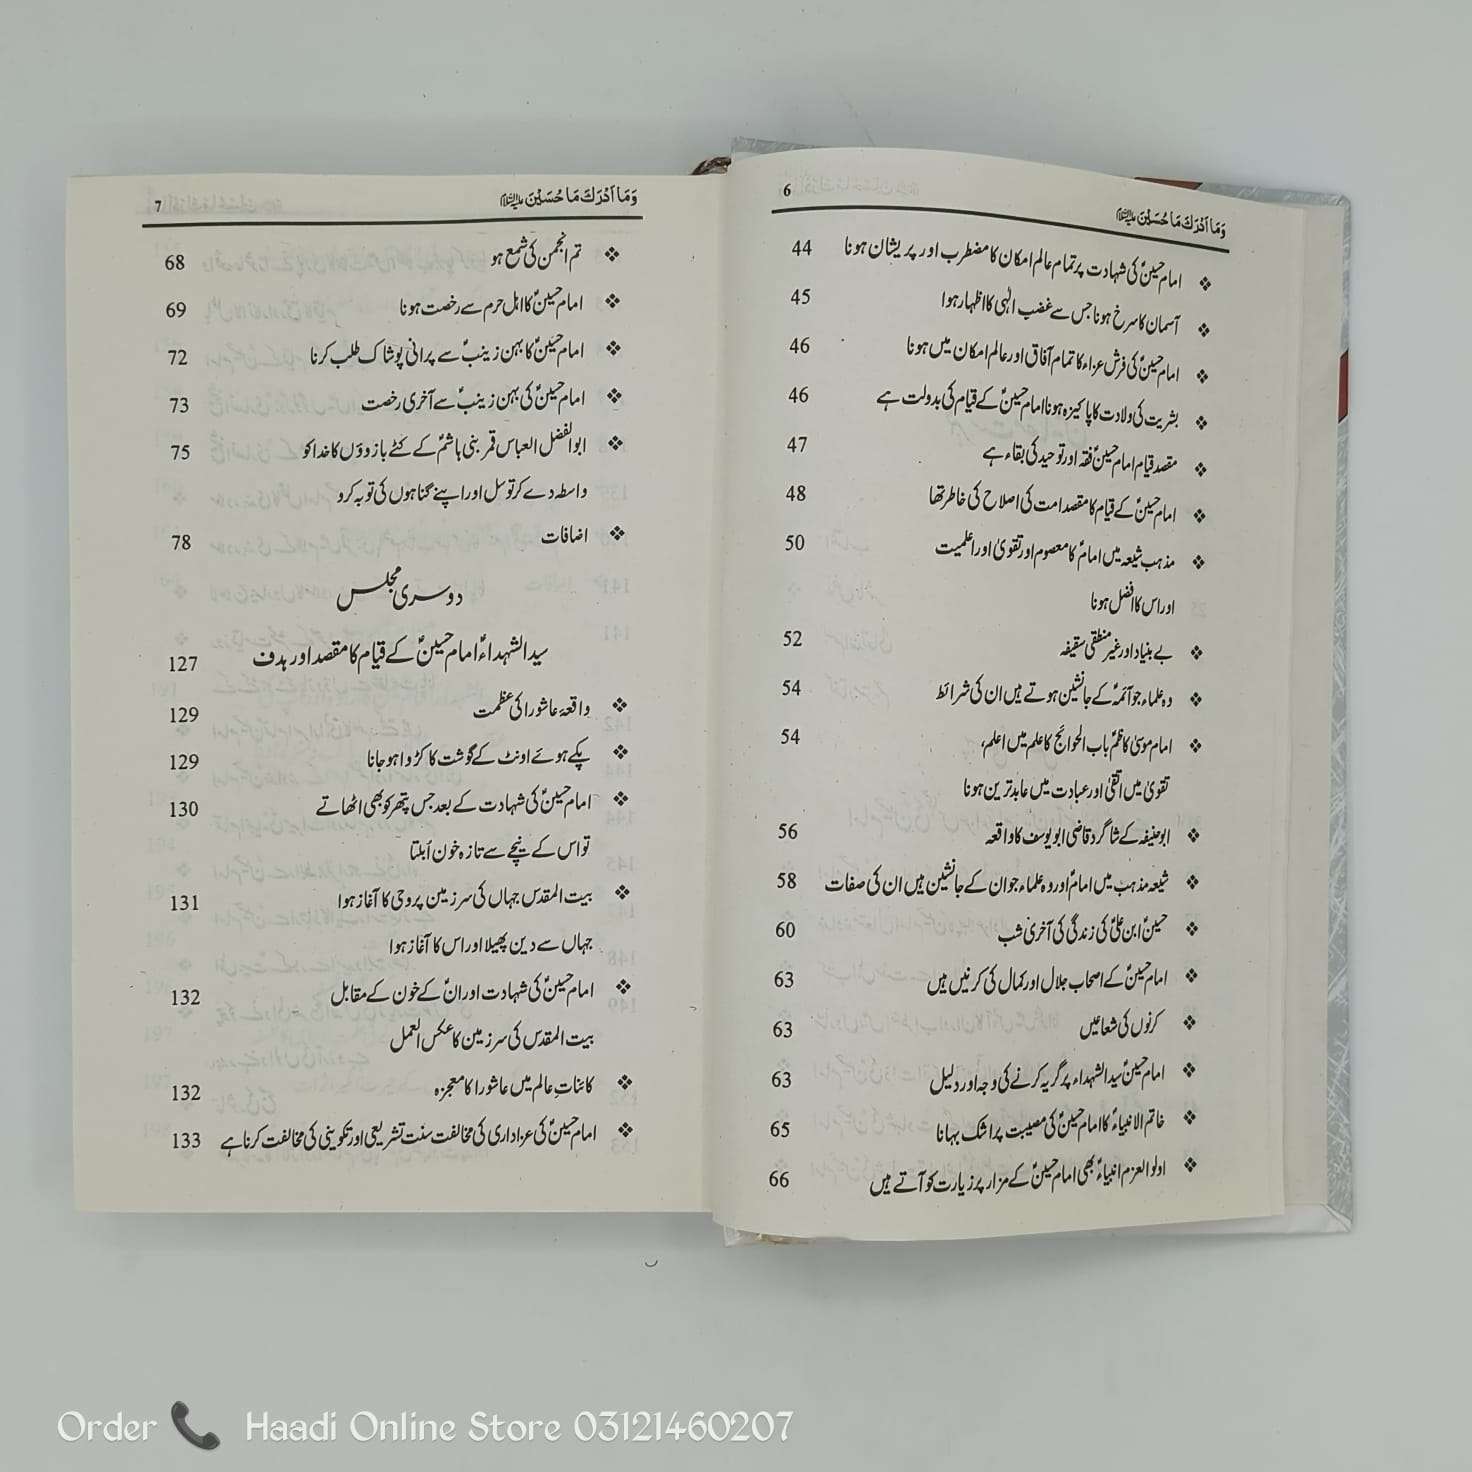 6
وَمَا اَدْرَكَ مَا حُسَيْن علیہ السلام
❖ امام حسینؑ کی شہادت پر تمام عالم امکان کا مضطرب اور پریشان ہونا 44
❖ آسمان کا سرخ ہونا جس سے غضب الٰہی کا اظہار ہوا 45
❖ امام حسینؑ کی فرش عزاء کا تمام آفاق اور عالم امکان میں ہونا 46
❖ بشریت کی ولادت کا پاکیزہ ہونا امام حسینؑ کے قیام کی بدولت ہے 46
❖ مقصد قیام امام حسینؑ فقہ اور توحید کی بقاء ہے 47
❖ امام حسینؑ کے قیام کا مقصد امت کی اصلاح کی خاطر تھا 48
❖ مذہب شیعہ میں امامؑ کا معصوم اور تقویٰ اور اعلمیت 50
اور اس کا افضل ہونا
❖ بے بنیاد اور غیر منطقی سقیفہ 52
❖ وہ علماء جو آئمہؑ کے جانشین ہوتے ہیں ان کی شرائط 54
❖ امام موسیٰ کاظمؑ باب الحوائج کا علم میں اعلم، 54
تقویٰ میں اتقیٰ اور عبادت میں عابد ترین ہونا
❖ ابو حنیفہ کے شاگرد قاضی ابو یوسف کا واقعہ 56
❖ شیعہ مذہب میں امامؑ اور وہ علماء جو ان کے جانشین ہیں ان کی صفات 58
❖ حسینؑ ابن علیؑ کی زندگی کی آخری شب 60
❖ امام حسینؑ کے اصحاب جلال اور کمال کی کرنیں ہیں 63
❖ کرنوں کی شعاعیں 63
❖ امام حسینؑ سید الشہداء پر گریہ کرنے کی وجہ اور دلیل 63
❖ خاتم الانبیاءؐ کا امام حسینؑ کی مصیبت پر اشک بہانا 65
❖ اولوالعزم انبیاءؑ بھی امام حسینؑ کے مزار پر زیارت کو آتے ہیں 66
7
وَمَا اَدْرَكَ مَا حُسَيْن علیہ السلام
❖ تم انجمن کی شمع ہو 68
❖ امام حسینؑ کا اہل حرم سے رخصت ہونا 69
❖ امام حسینؑ کا بہن زینبؑ سے پرانی پوشاک طلب کرنا 72
❖ امام حسینؑ کی بہن زینبؑ سے آخری رخصت 73
❖ ابوالفضل العباس قمر بنی ہاشمؑ کے کٹے بازوؤں کا خدا کو 75
واسطہ دے کر توسل اور اپنے گناہوں کی توبہ کرو
❖ اضافات 78
دوسری مجلس
سید الشہداءؑ امام حسینؑ کے قیام کا مقصد اور ہدف 127
❖ واقعۂ عاشورا کی عظمت 129
❖ پکے ہوئے اونٹ کے گوشت کا کڑوا ہو جانا 129
❖ امام حسینؑ کی شہادت کے بعد جس پتھر کو بھی اٹھاتے 130
تو اس کے نیچے سے تازہ خون اُبلتا
❖ بیت المقدس جہاں کی سرزمین پر وحی کا آغاز ہوا 131
جہاں سے دین پھیلا اور اس کا آغاز ہوا
❖ امام حسینؑ کی شہادت اور انؑ کے خون کے مقابل 132
بیت المقدس کی سرزمین کا عکس العمل
❖ کائناتِ عالم میں عاشورا کا معجزہ 132
❖ امام حسینؑ کی عزاداری کی مخالفت سنت تشریعی اور تکوینی کی مخالفت کرنا ہے 133
Order Haadi Online Store 03121460207